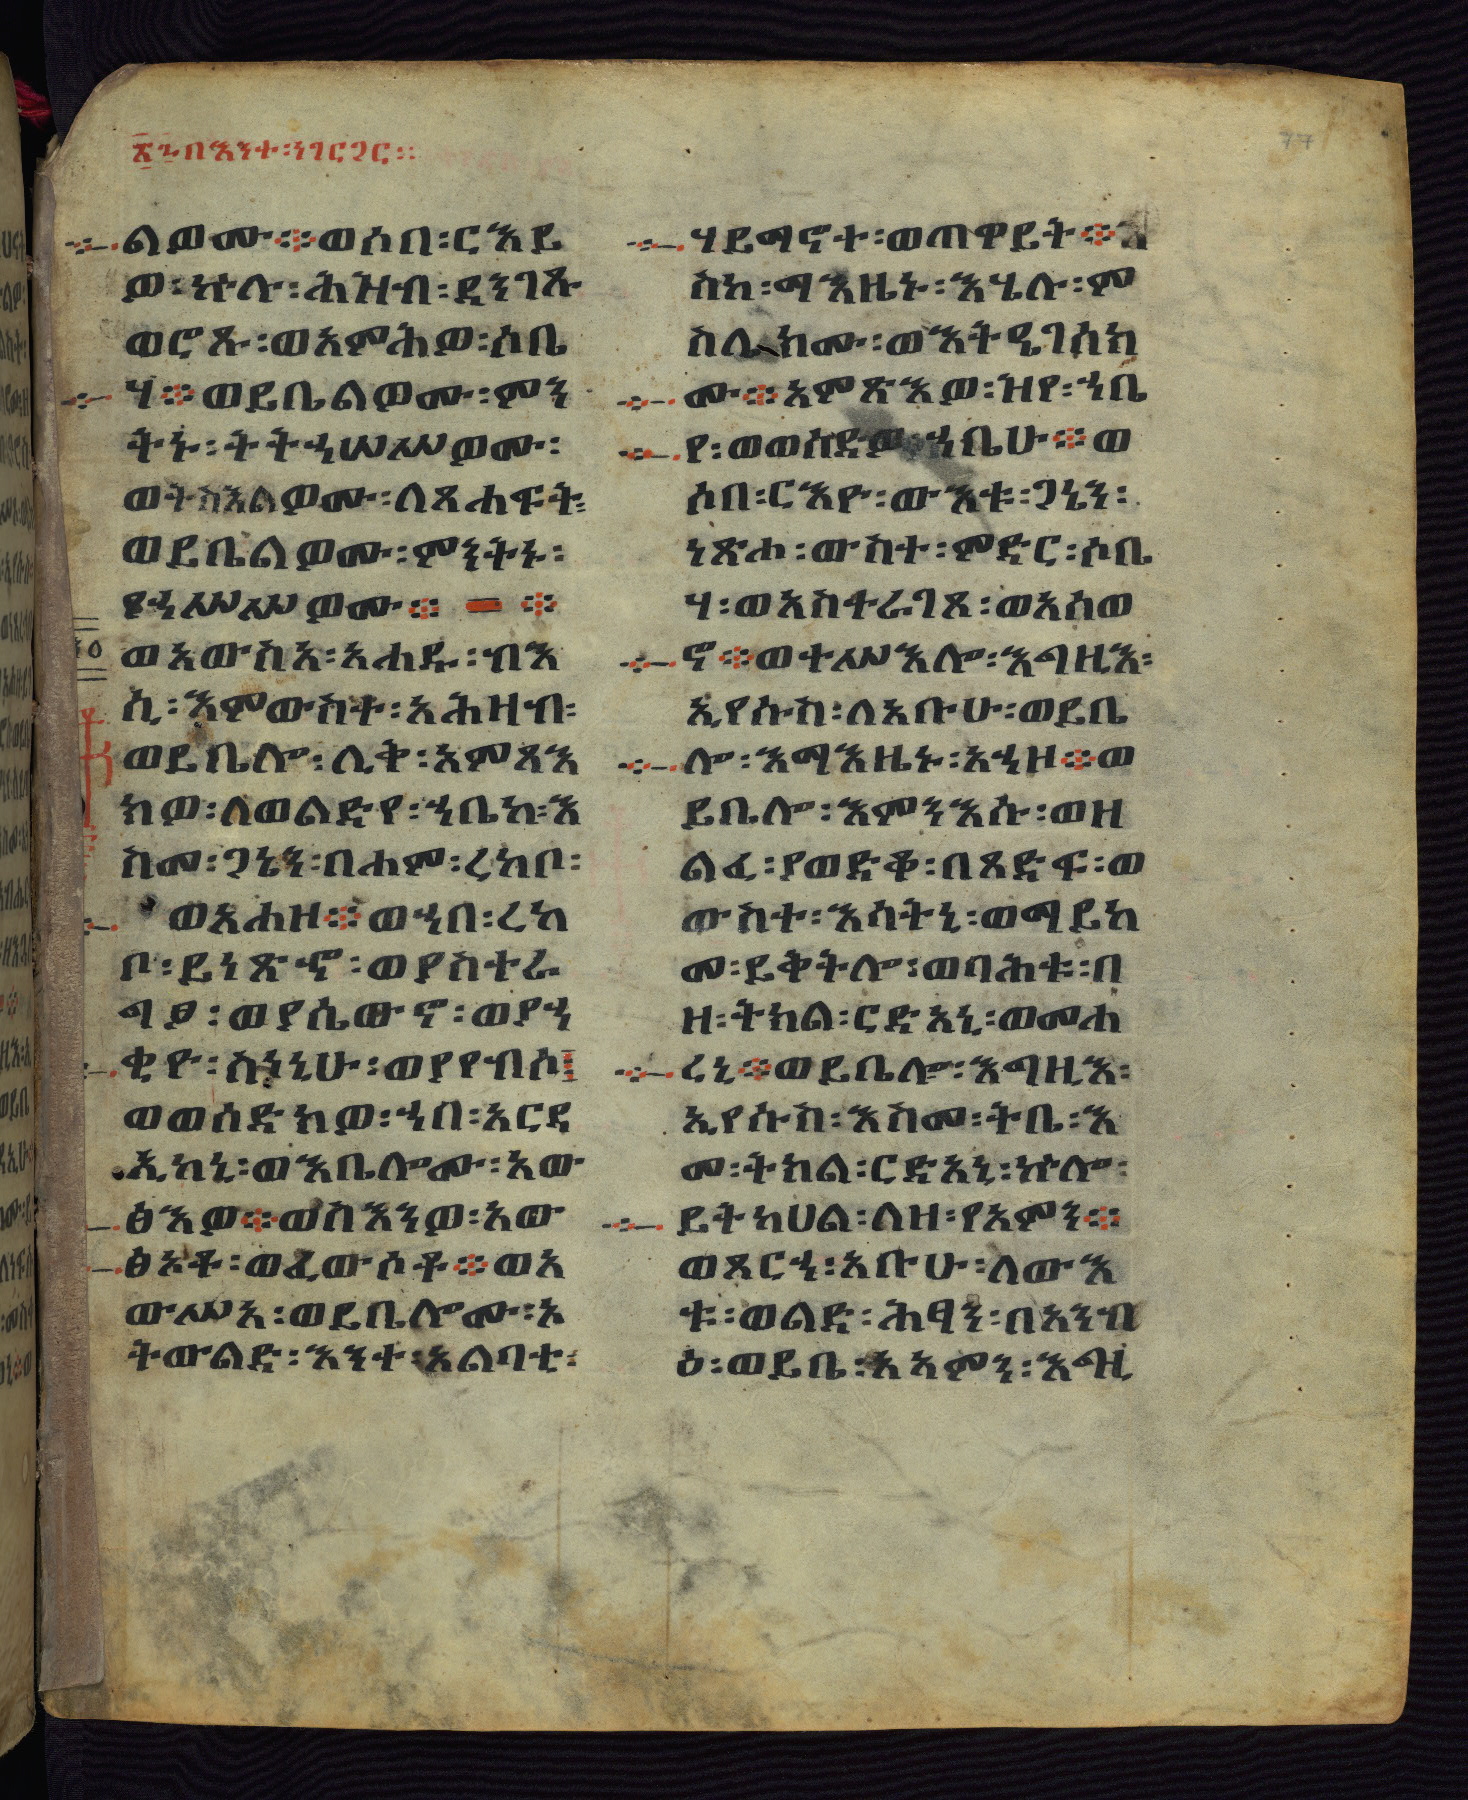 ፳፭በእንተ፡ነገርጋር፡፡
77
ልዎሙ፨ወሶበ፡ርእይ
ዎ፡ኵሉ፡ሕዝብ፡ደንገጹ
ወሮጹ፡ወአምሕዎ፡ሶቤ
ሃ፨ወይቤልዎሙ፡ምን
ትኑ፡ትትኃሠሥዎሙ፡
ወትስእልዎሙ፡ለጸሐፍት፡
ወይቤልዎሙ፡ምንትኑ፡
ዩኃሥሥዎሙ፨ ፨
ወአውስአ፡አሐዱ፡ብእ
ሲ፡እምውስተ፡አሕዛብ፡
ወይቤሎ፡ሊቅ፡አምጻእ
ክዎ፡ለወልድየ፡ኀቤከ፡እ
ስመ፡ጋኔን፡በሐም፡ረከቦ፡
ወአሐዞ፨ወኀበ፡ረከ
ቦ፡ይነጽኆ፡ወያስተራ
ግፆ፡ወያሴውኖ፡ወያኀ
ቂዮ፡ስነኒሁ፡ወያየብሶ፤
ወወሰድክዎ፡ኀበ፡አርዳ
ኢከኒ፡ወእቤሎሙ፡አው
ፅእዎ፨ወስእንዎ፡አው
ፅኦቶ፡ወፈውሶቶ፨ወአ
ውሥአ፡ወይቤሎሙ፡ኦ
ትውልድ፡እንተ፡አልባቲ፡
ሃይማኖተ፡ወጠዋይት፨እ
ስከ፡ማእዜኑ፡እሄሉ፡ም
ስሌክሙ፡ወእትዔገሰክ
ሙ፨አምጽእዎ፡ዝየ፡ኀቤ
የ፡ወወሰድዎ፡ኀቤሁ፨ወ
ሶበ፡ርእዮ፡ውእቱ፡ጋኔን፡
ነጽሖ፡ውስተ፡ምድር፡ሶቤ
ሃ፡ወአስተራገጾ፡ወአሰወ
ኖ፨ወተሥእሎ፡እግዚእ፡
ኢየሱስ፡ለአቡሁ፡ወይቤ
ሎ፡እማእዜኑ፡አኀዞ፨ወ
ይቤሎ፡እምንእሱ፡ወዘ
ልፈ፡ያወድቆ፡በጸድፍ፡ወ
ውስተ፡እሳትኒ፡ወማይከ
መ፡ይቅትሎ፡ወባሕቱ፡በ
ዘ፡ትክል፡ርድአኒ፡ወመሐ
ረኒ፨ወይቤሎ፡እግዚእ፡
ኢየሱስ፡እስመ፡ትቤ፡እ
መ፡ትክል፡ርድአኒ፡ኵሎ፡
ይትከሀል፡ለዘ፡የአምን፨
ወጸርኀ፡አቡሁ፡ለውእ
ቱ፡ወልድ፡ሕፃን፡በአንብ
ዕ፡ወይቤ፡አአምን፡እግዚ